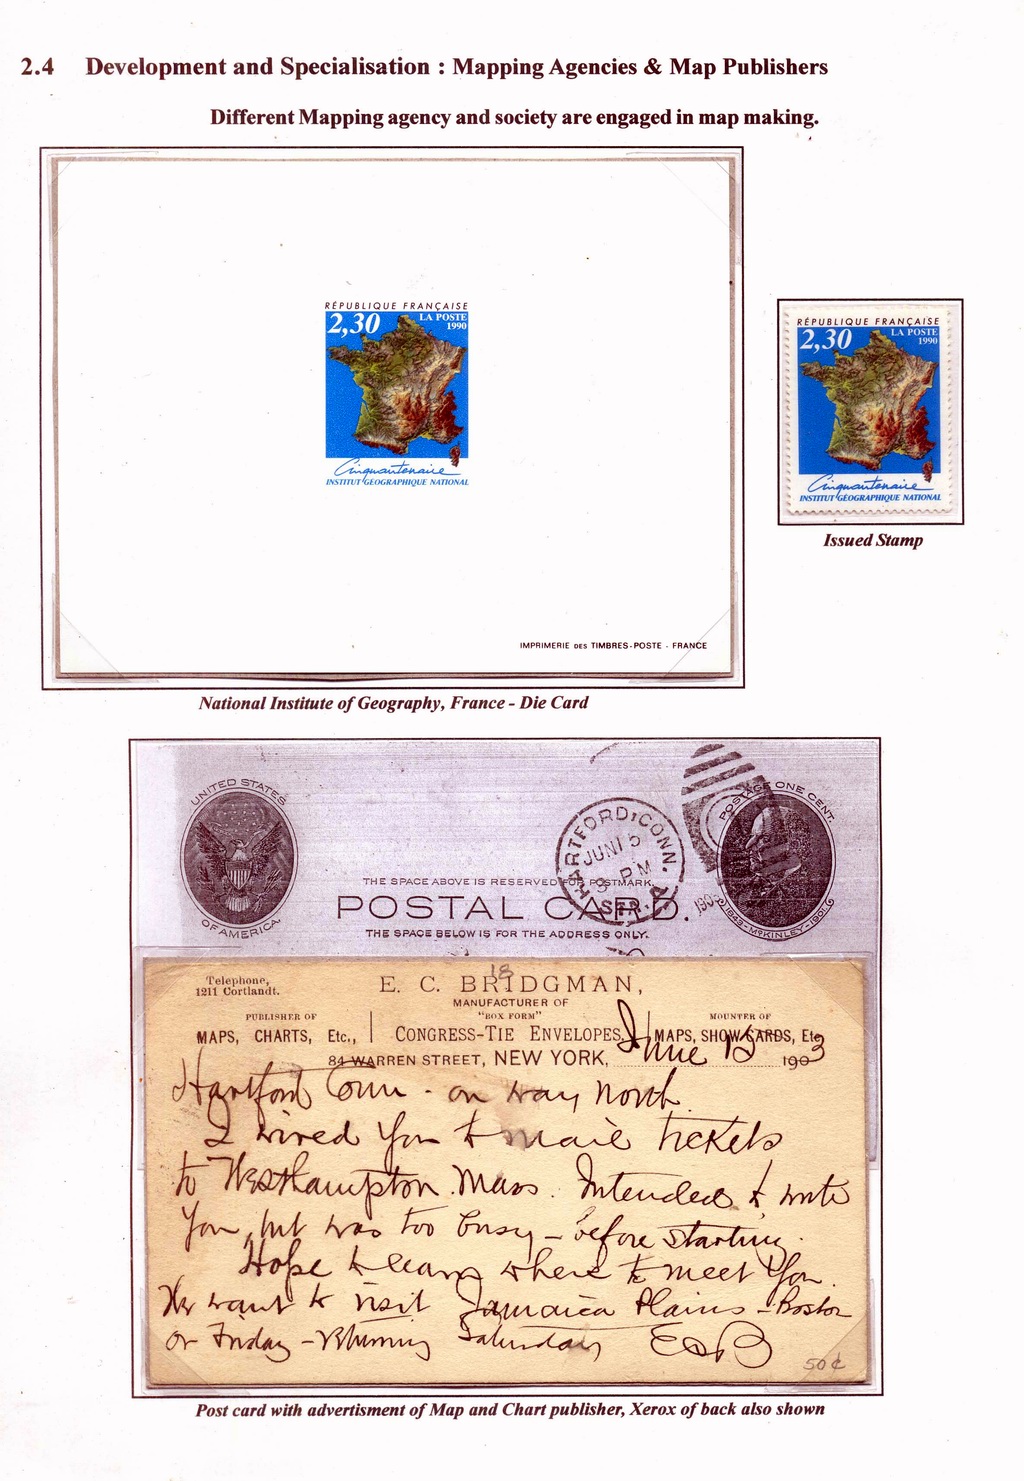 2.4 Development and Specialisation : Mapping Agencies & Map Publishers
Different Mapping agency and society are engaged in map making.
RÉPUBLIQUE FRANÇAISE
2,30 LA POSTE
1990
Cinquantenaire
INSTITUT GÉOGRAPHIQUE NATIONAL
IMPRIMERIE DES TIMBRES-POSTE - FRANCE
RÉPUBLIQUE FRANÇAISE
2,30 LA POSTE
1990
Cinquantenaire
INSTITUT GÉOGRAPHIQUE NATIONAL
Issued Stamp
National Institute of Geography, France - Die Card
UNITED STATES
OF AMERICA.
HARTFORD, CONN.
JUN 15
8 PM
1903
STA.
POSTAGE ONE CENT.
1843-McKINLEY-1901
THE SPACE ABOVE IS RESERVED FOR POSTMARK.
POSTAL CARD.
THE SPACE BELOW IS FOR THE ADDRESS ONLY.
Telephone,
1211 Cortlandt.
18
E. C. BRIDGMAN,
MANUFACTURER OF
PUBLISHER OF "BOX FORM" MOUNTER OF
MAPS, CHARTS, Etc., CONGRESS-TIE ENVELOPES, MAPS, SHOW CARDS, Etc
84 WARREN STREET, NEW YORK, June 15 1903
Hartford Conn - on way north.
I wired you to mail tickets
to Westhampton Mass. Intended to write
you, but was too busy - before starting.
Hope to learn where to meet you.
We want to visit Jamaica Plains - Boston
on Friday - Returning Saturday ECB
50¢
Post card with advertisment of Map and Chart publisher, Xerox of back also shown